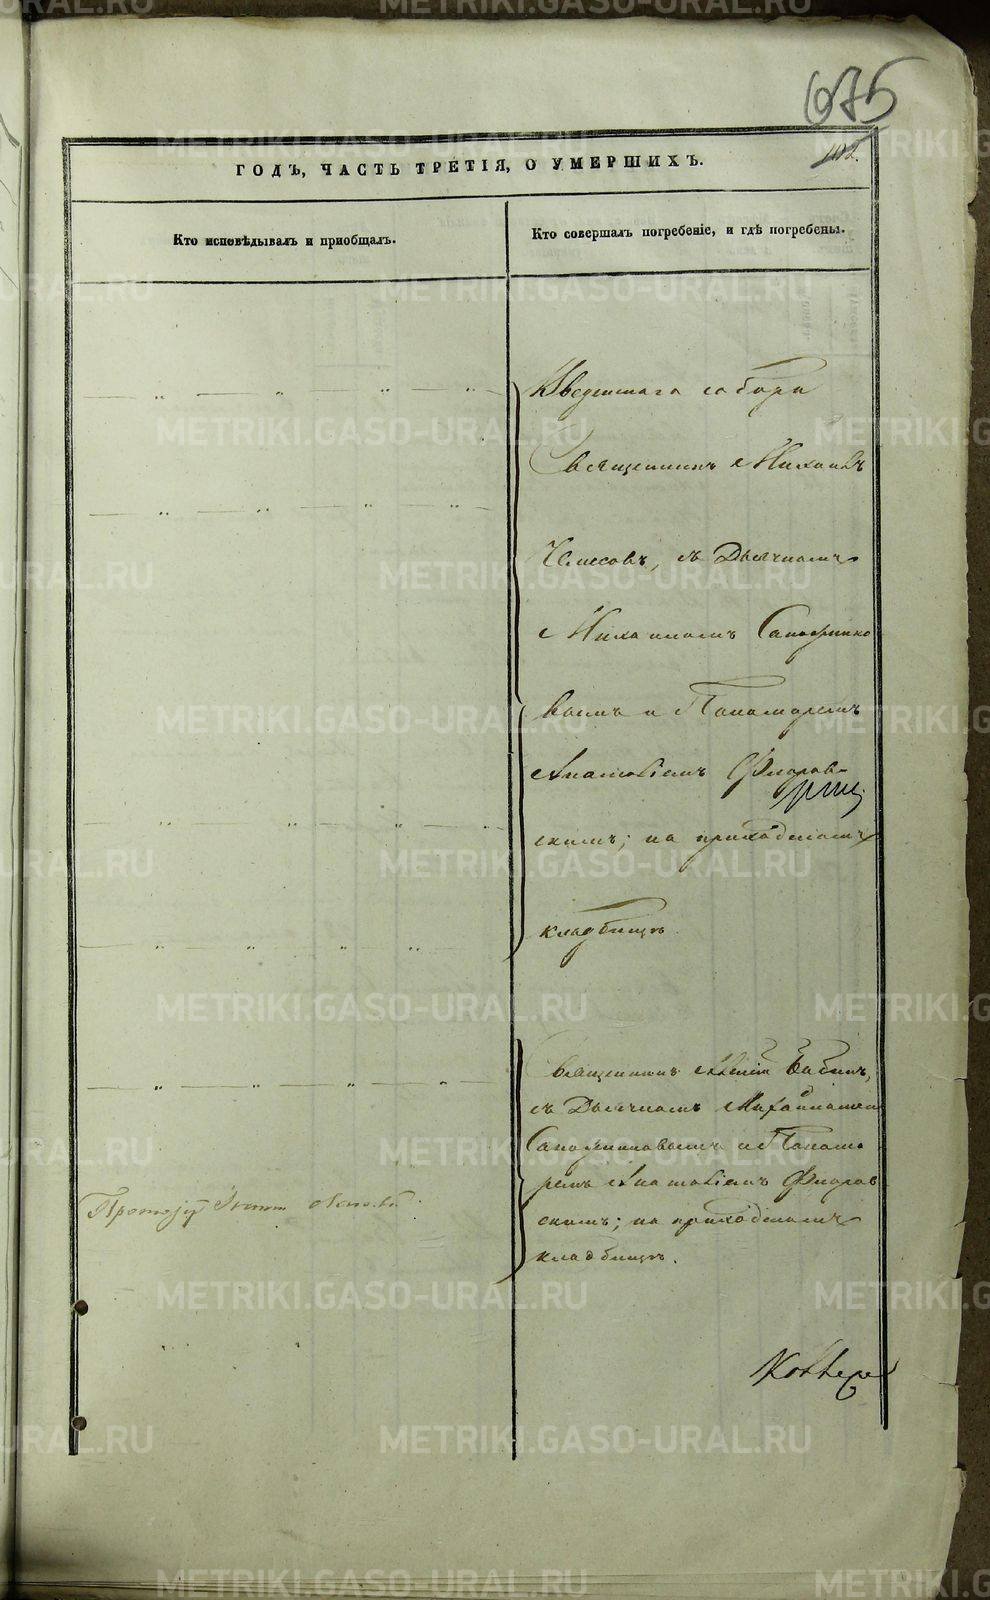 675
102.
ГОДЪ, ЧАСТЬ ТРЕТІЯ, О УМЕРШИХЪ.
Кто исповѣдывалъ и приобщалъ.
Кто совершалъ погребеніе, и гдѣ погребены.
Введенскаго собора
Священникъ Михаилъ
съ Дьячкомъ
Михаиломъ Сапожнико
вымъ и Пономаремъ
Анатоліемъ Флоров-
скимъ; на приходскомъ
кладбищѣ.
Священникъ Бабинъ,
съ Дьячкомъ Михаиломъ
Сапожниковымъ и Понома
ремъ Анатоліемъ Флоров
скимъ; на приходскомъ
кладбищѣ.
Протоіерей
METRIKI.GASO-URAL.RU